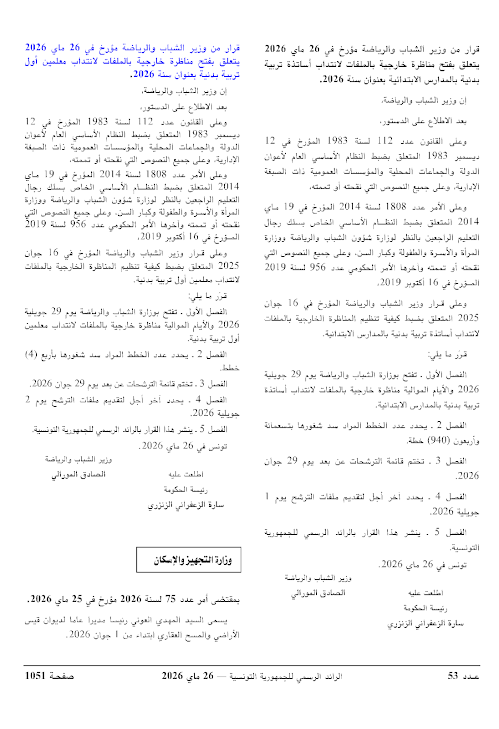 قرار من وزير الشباب والرياضة مؤرخ في 26 ماي 2026
يتعلق بفتح مناظرة خارجية بالملفات لانتداب أساتذة تربية
بدنية بالمدارس الابتدائية بعنوان سنة 2026.
إن وزير الشباب والرياضة،
بعد الاطلاع على الدستور،
وعلى القانون عدد 112 لسنة 1983 المؤرخ في 12
ديسمبر 1983 المتعلق بضبط النظام الأساسي العام لأعوان
الدولة والجماعات المحلية والمؤسسات العمومية ذات الصبغة
الإدارية، وعلى جميع النصوص التي نقحته أو تممته،
وعلى الأمر عدد 1808 لسنة 2014 المؤرخ في 19 ماي
2014 المتعلق بضبط النظـــام الأساسي الخاص بسلك رجال
التعليم الراجعين بالنظر لوزارة شؤون الشباب والرياضة ووزارة
المرأة والأسرة والطفولة وكبار السن، وعلى جميع النصوص التي
نقحته أو تممته وآخرها الأمر الحكومي عدد 956 لسنة 2019
المـؤرخ في 16 أكتوبر 2019،
وعلى قـرار وزير الشباب والرياضة المؤرخ في 16 جوان
2025 المتعلق بضبط كيفية تنظيم المناظرة الخارجية بالملفات
لانتداب أساتذة تربية بدنية بالمدارس الابتدائية.
قـرّر ما يلي:
الفصل الأول ـ تفتح بوزارة الشباب والرياضة يوم 29 جويلية
2026 والأيام الموالية مناظرة خارجية بالملفات لانتداب أساتذة
تربية بدنية بالمدارس الابتدائية.
الفصل 2 ـ يحدد عدد الخطط المراد سد شغورها بتسعمائة
وأربعون (940) خطة.
الفصل 3 ـ تختم قائمة الترشحات عن بعد يوم 29 جوان
2026.
الفصل 4 ـ يحدد آخر أجل لتقديم ملفات الترشح يوم 1
جويلية 2026.
الفصل 5 ـ ينشر هذا القرار بالرائد الرسمي للجمهورية
التونسية.
تونس في 26 ماي 2026.
وزير الشباب والرياضة
الصادق المورالي
اطلعت عليه
رئيسة الحكومة
سارة الزعفراني الزنزري
قرار من وزير الشباب والرياضة مؤرخ في 26 ماي 2026
يتعلق بفتح مناظرة خارجية بالملفات لانتداب معلمين أول
تربية بدنية بعنوان سنة 2026.
إن وزير الشباب والرياضة،
بعد الاطلاع على الدستور،
وعلى القانون عدد 112 لسنة 1983 المؤرخ في 12
ديسمبر 1983 المتعلق بضبط النظام الأساسي العام لأعوان
الدولة والجماعات المحلية والمؤسسات العمومية ذات الصبغة
الإدارية، وعلى جميع النصوص التي نقحته أو تممته،
وعلى الأمر عدد 1808 لسنة 2014 المؤرخ في 19 ماي
2014 المتعلق بضبط النظـــام الأساسي الخاص بسلك رجال
التعليم الراجعين بالنظر لوزارة شؤون الشباب والرياضة ووزارة
المرأة والأسرة والطفولة وكبار السن، وعلى جميع النصوص التي
نقحته أو تممته وآخرها الأمر الحكومي عدد 956 لسنة 2019
المـؤرخ في 16 أكتوبر 2019،
وعلى قـرار وزير الشباب والرياضة المؤرخ في 16 جوان
2025 المتعلق بضبط كيفية تنظيم المناظرة الخارجية بالملفات
لانتداب معلمين أول تربية بدنية.
قـرّر ما يلي:
الفصل الأول ـ تفتح بوزارة الشباب والرياضة يوم 29 جويلية
2026 والأيام الموالية مناظرة خارجية بالملفات لانتداب معلمين
أول تربية بدنية.
الفصل 2 ـ يحدد عدد الخطط المراد سد شغورها بأربع (4)
خطط.
الفصل 3 ـ تختم قائمة الترشحات عن بعد يوم 29 جوان 2026.
الفصل 4 ـ يحدد آخر أجل لتقديم ملفات الترشح يوم 2
جويلية 2026.
الفصل 5 ـ ينشر هذا القرار بالرائد الرسمي للجمهورية التونسية.
تونس في 26 ماي 2026.
وزير الشباب والرياضة
الصادق المورالي
اطلعت عليه
رئيسة الحكومة
سارة الزعفراني الزنزري
وزارة التجهيز والإسكان
بمقتضى أمر عدد 75 لسنة 2026 مؤرخ في 25 ماي 2026.
يسمى السيد المهدي الغوني رئيسا مديرا عاما لديوان قيس
الأراضي والمسح العقاري ابتداء من 1 جوان 2026.
عـدد 53
الرائد الرسمي للجمهورية التونسية — 26 ماي 2026
صفحة 1051